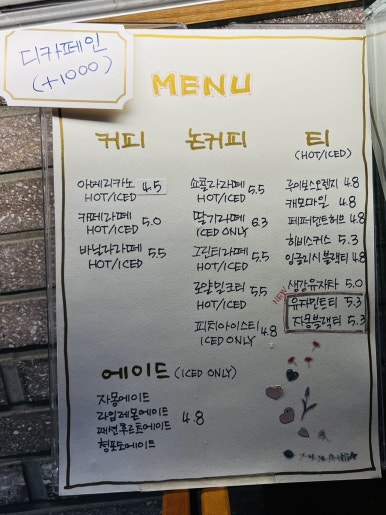 디카페인
(+1000)
MENU
커피
아메리카노 4.5
HOT/ICED
카페라떼 5.0
HOT/ICED
바닐라라떼 5.5
HOT/ICED
논커피
쇼콜라라떼 5.5
HOT/ICED
딸기라떼 6.3
ICED ONLY
그린티라떼 5.5
HOT/ICED
로얄밀크티 5.5
HOT/ICED
피치아이스티 4.8
ICED ONLY
티
(HOT/ICED)
루이보스오렌지 4.8
캐모마일 4.8
페퍼민트허브 4.8
히비스커스 5.3
잉글리시블랙티 4.8
생강유자차 5.0
NEW
유자민트티 5.3
자몽블랙티 5.3
에이드 (ICED ONLY)
자몽에이드
라임레몬에이드 4.8
패션후르츠에이드
청포도에이드